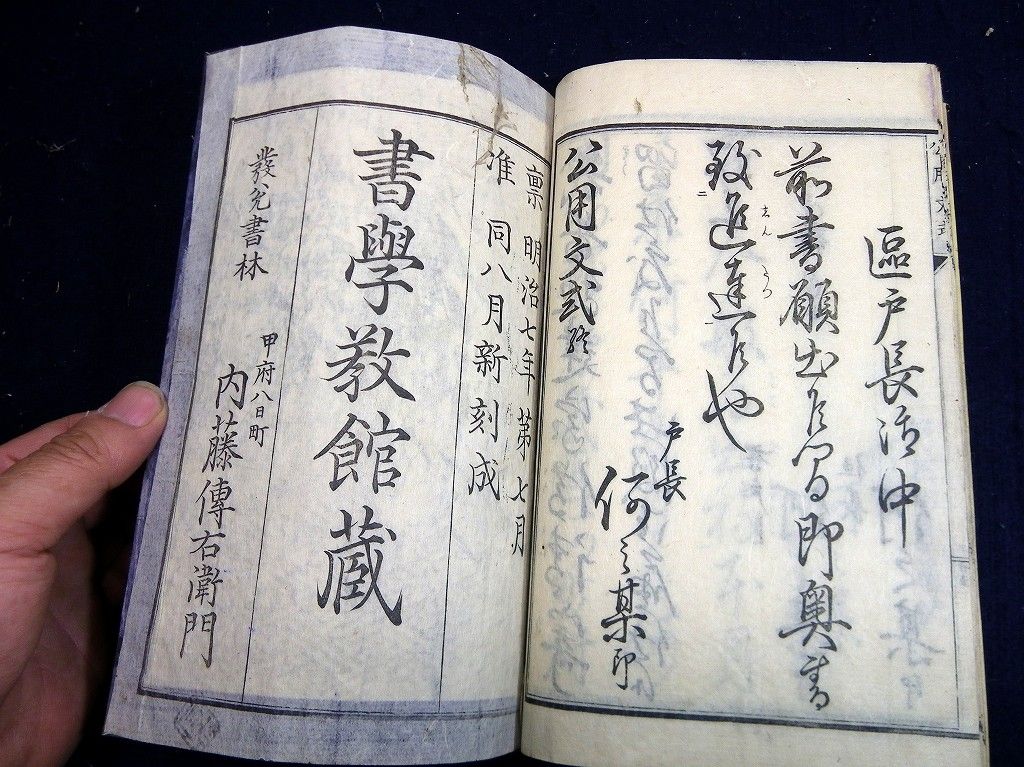 公用文式
區戸長御中
前書願出候間即奥書
致進達候也
戸長
何之某印
公用文式終
稟 明治七年第七月
准 同八月新刻成
書學教館蔵
甲府八日町
内藤傳右衛門
發兌書林